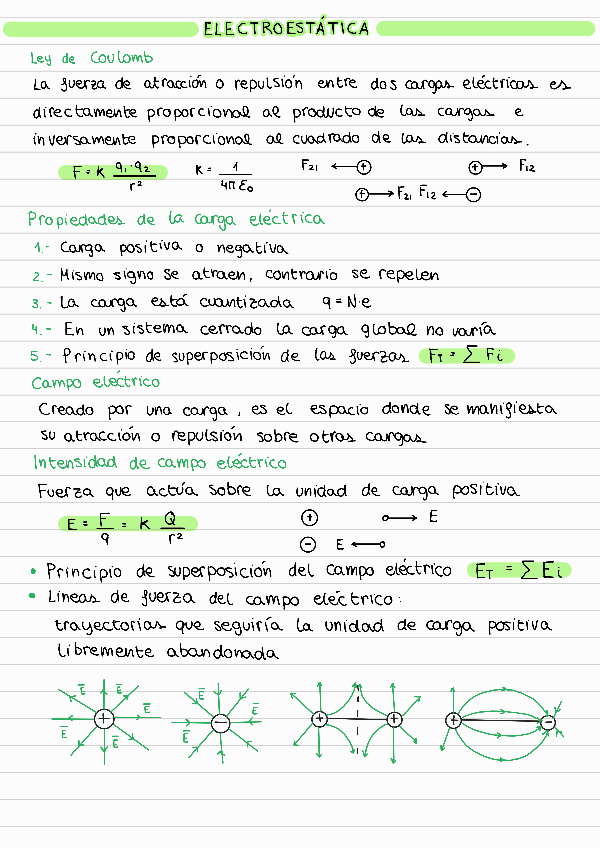 ELECTROESTÁTICA
Ley de Coulomb
La fuerza de atracción o repulsión entre dos cargas eléctricas es
directamente proporcional al producto de las cargas e
inversamente proporcional al cuadrado de las distancias.
F = K q₁·q₂ / r²    K = 1 / 4π ε₀    F₂₁ ← +    + → F₁₂
+ → F₂₁ F₁₂ ← −
Propiedades de la carga eléctrica
1.- Carga positiva o negativa
2.- Mismo signo se atraen, contrario se repelen
3.- La carga está cuantizada q = N·e
4.- En un sistema cerrado la carga global no varía
5.- Principio de superposición de las fuerzas F_T = Σ Fi
Campo eléctrico
Creado por una carga, es el espacio donde se manifiesta
su atracción o repulsión sobre otras cargas
Intensidad de campo eléctrico
Fuerza que actúa sobre la unidad de carga positiva
E = F / q = K Q / r²    + → E
− E ←
• Principio de superposición del campo eléctrico E_T = Σ Ei
• Líneas de fuerza del campo eléctrico:
trayectorias que seguiría la unidad de carga positiva
libremente abandonada
E E E E E + E E E − + + + −